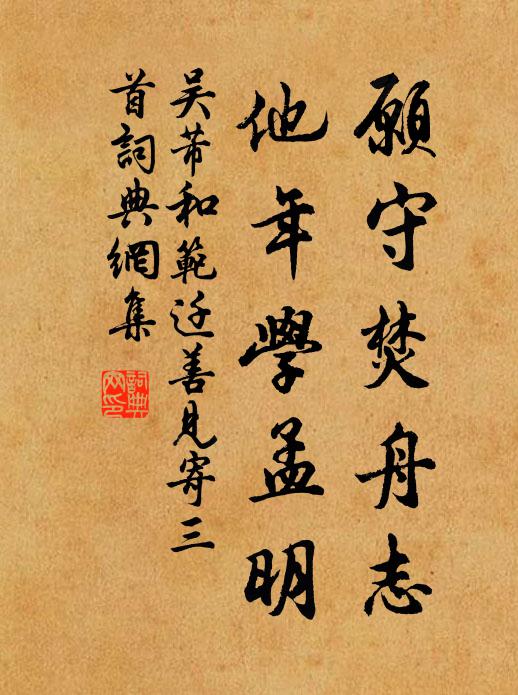 願守焚舟志
他年學孟明
吴芾和範迋善見寄三
首詞典網集
詞典網印